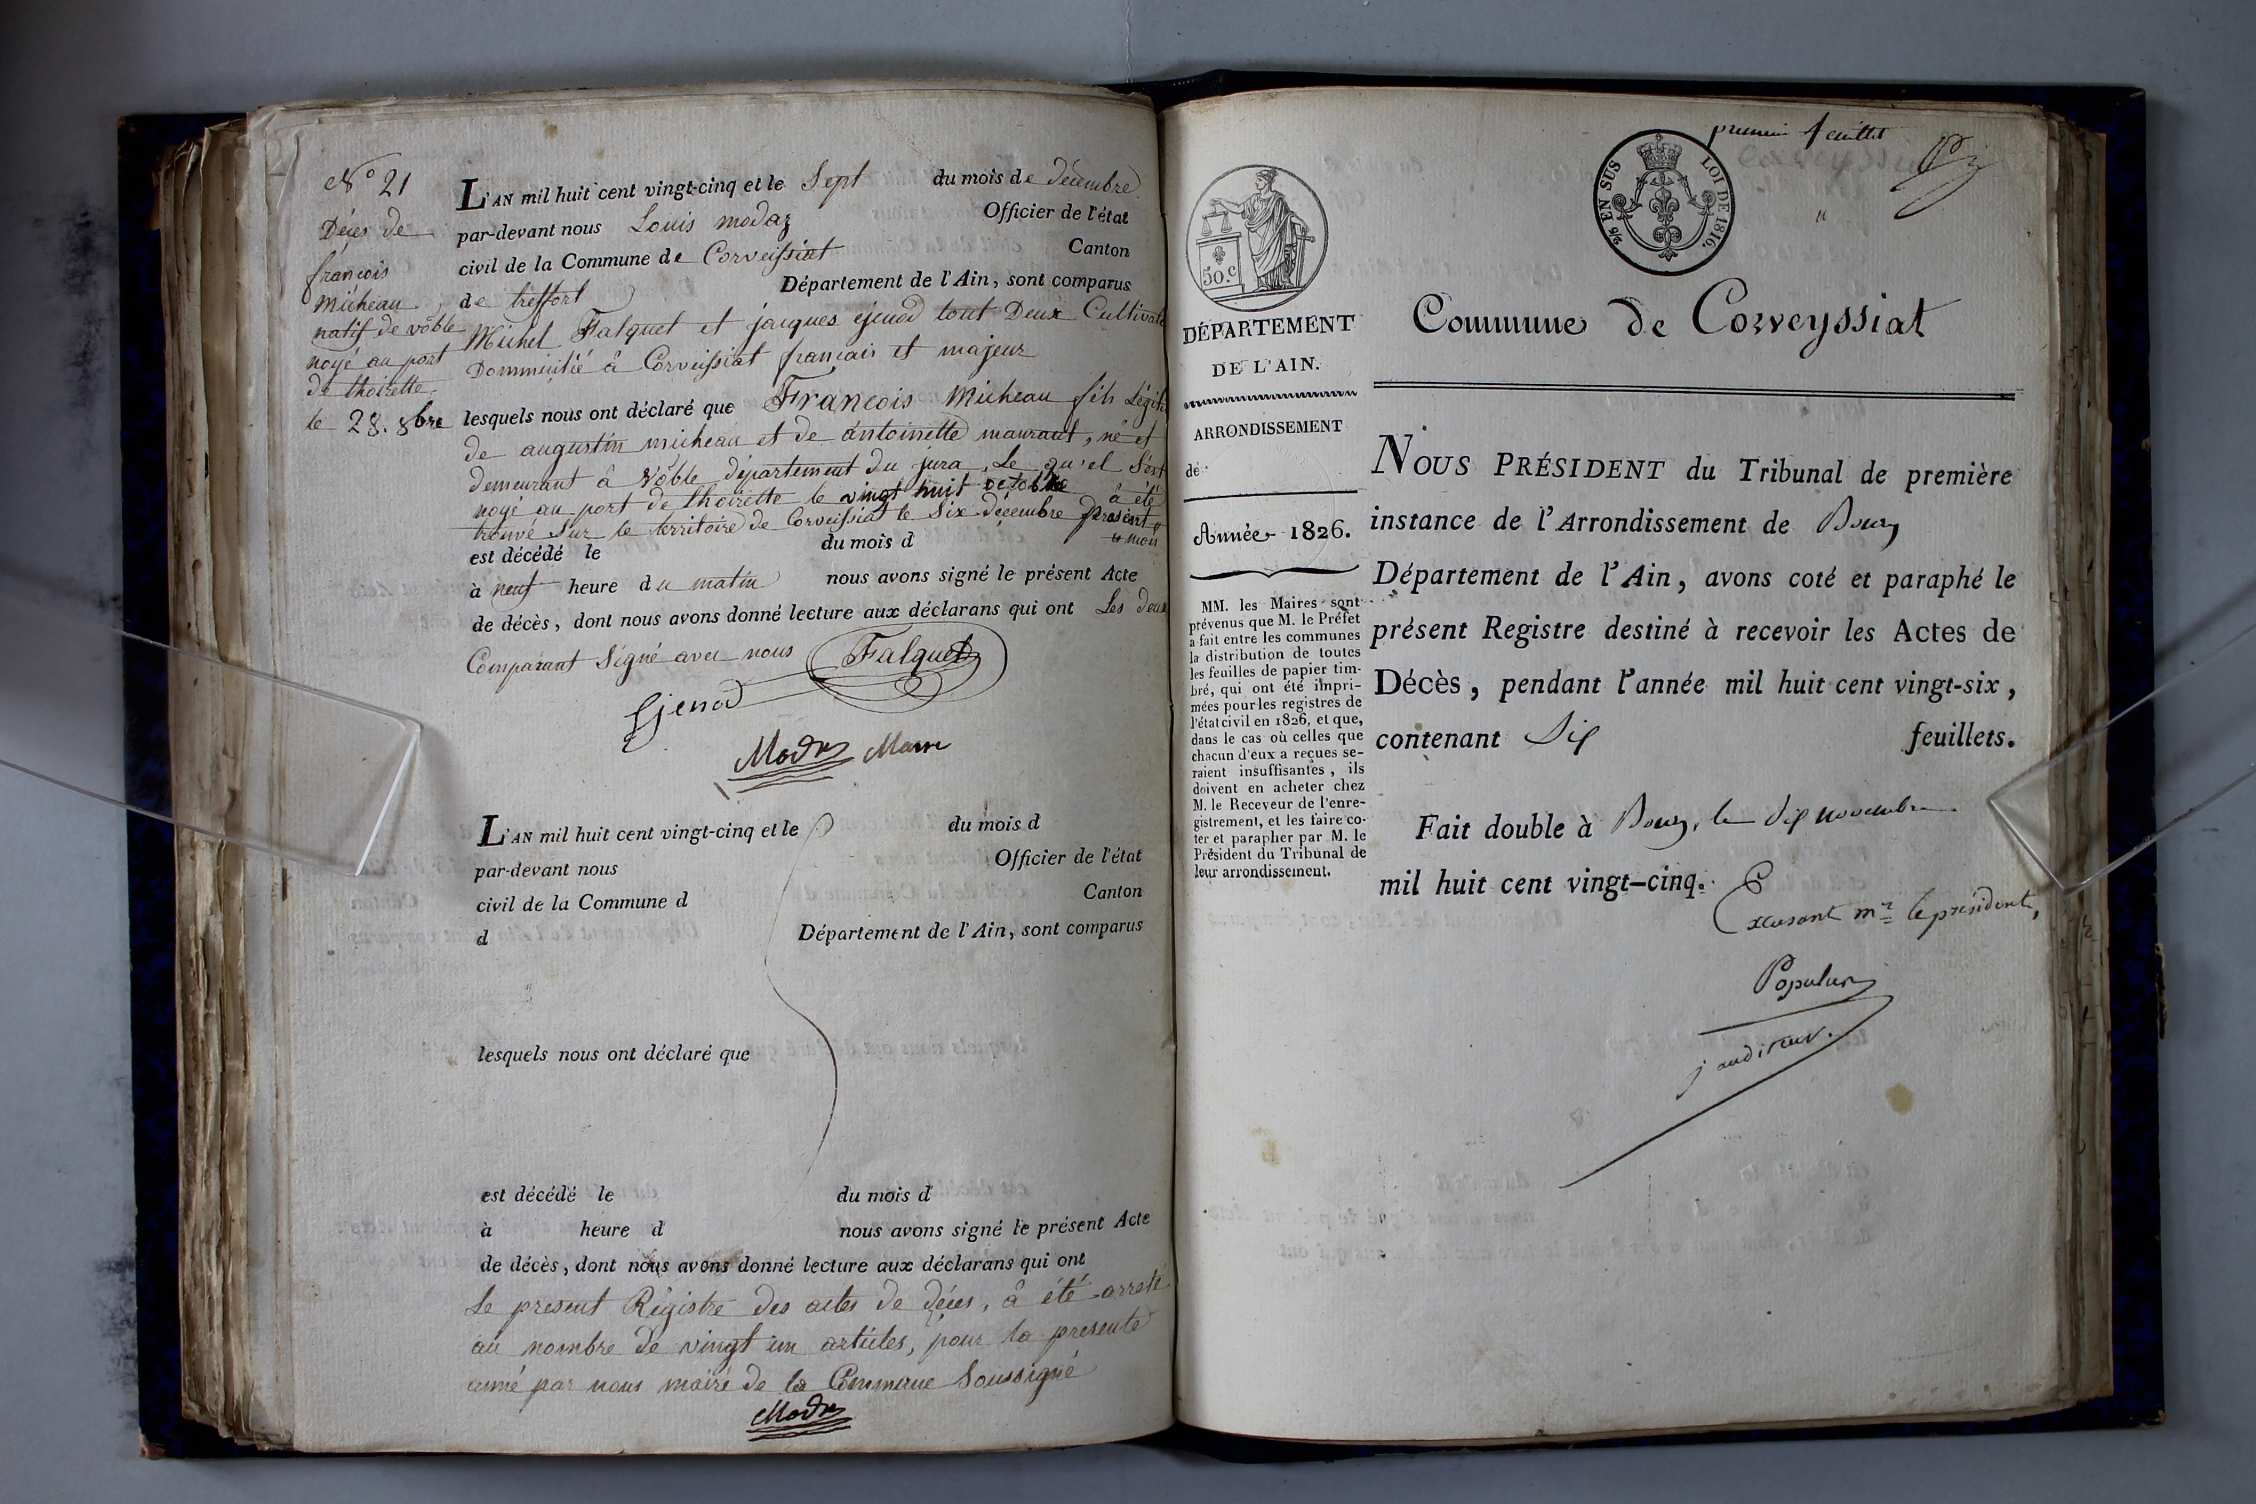 N° 21
Décès de
françois
Micheau
natif de vôble
noyé au port
de thoirette
le 28. 8bre
L'AN mil huit cent vingt-cinq et le Sept du mois de décembre
par-devant nous Louis modaz Officier de l'état
civil de la Commune de Corveissiat Canton
de treffort Département de l'Ain, sont comparus
Michel Falquet et jacques ejenod tout Deux Cultivate
Dommicilié â Corveissiat francais et majeur
lesquels nous ont déclaré que François Micheau fils Légiti
de augustin micheau et de antoinette mauraut, né et
demeurant â Vôble département du jura, Le qu'el S'est
noyé au port de thoirette le vingt huit octobre â été
trouvé sur le territoire de Corveissiat le Six décembre présent
est décédé le du mois d mois
à neuf heure du matin nous avons signé le présent Acte
de décès, dont nous avons donné lecture aux déclarans qui ont Les deux
Comparant Signé avec nous Falquet
Ejenod
Modaz Maire
L'AN mil huit cent vingt-cinq et le du mois d
par-devant nous Officier de l'état
civil de la Commune d Canton
d Département de l'Ain, sont comparus
lesquels nous ont déclaré que
est décédé le du mois d
à heure d nous avons signé le présent Acte
de décès, dont nous avons donné lecture aux déclarans qui ont
Le present Régistre des actes de décès, â été arrete
au nombre de vingt un articles, pour la presente
anné par nous maire de la Commune Soussigné
Modaz
premier feuillet
EN SUS LOI DE 1816.
50.c
DÉPARTEMENT
DE L'AIN.
ARRONDISSEMENT
de
Année 1826.
MM. les Maires sont
prévenus que M. le Préfet
a fait entre les communes
la distribution de toutes
les feuilles de papier tim-
bré, qui ont été impri-
mées pour les registres de
l'état civil en 1826, et que,
dans le cas où celles que
chacun d'eux a reçues se-
raient insuffisantes, ils
doivent en acheter chez
M. le Receveur de l'enre-
gistrement, et les faire co-
ter et parapher par M. le
Président du Tribunal de
leur arrondissement.
Commune de Corveyssiat
NOUS PRÉSIDENT du Tribunal de première
instance de l'Arrondissement de Bourg
Département de l'Ain, avons coté et paraphé le
présent Registre destiné à recevoir les Actes de
Décès, pendant l'année mil huit cent vingt-six,
contenant Six feuillets.
Fait double à Bourg, le dix novembre
mil huit cent vingt-cinq.
Excusant mr le président,
Populus
j auditeur.